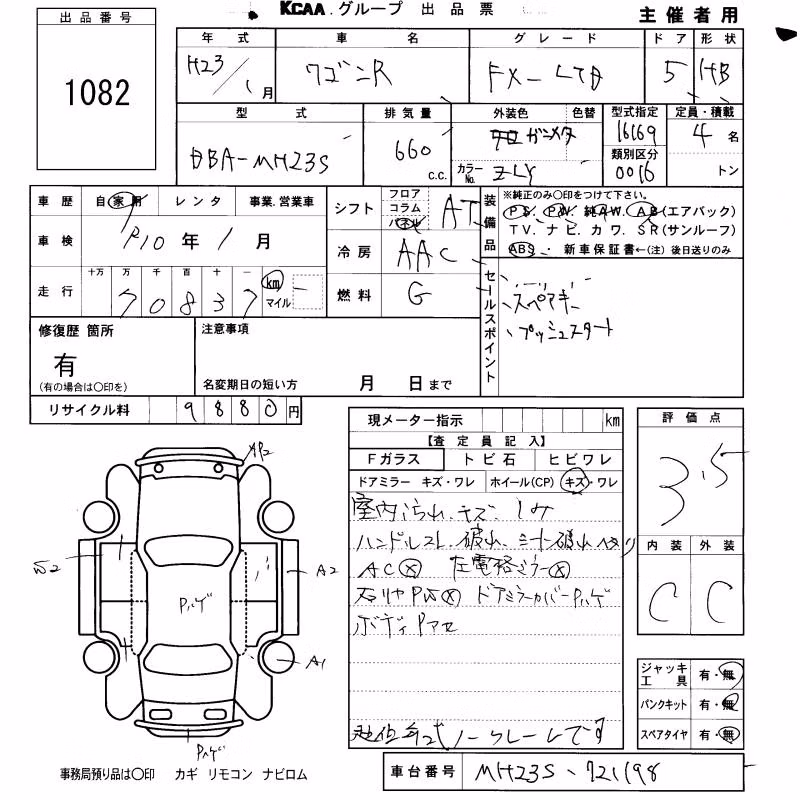 KCAA.グループ 出品票
主催者用
出品番号
1082
年式 車名 グレード ドア 形状
H23/1月 ワゴンR FX-LTD 5 HB
型式 排気量 外装色 色替 型式指定 定員・積載
DBA-MH23S 660 c.c. ガンメタ 16169 4名
カラーNo. ZLY 類別区分 0016 トン
車歴 自家用 レンタ 事業.営業車
車検 R10年1月
走行 十万 万 千 百 十 一
70837 km マイル
シフト フロア コラム パネル AT
冷房 AAC
燃料 G
装備品 ※純正のみ○印をつけて下さい。
PS. PW. 純AW. AB(エアバック)
TV. ナビ. カワ. SR(サンルーフ)
ABS・新車保証書←(注)後日送りのみ
セールスポイント
、スペアキー
、プッシュスタート
修復歴 箇所
有
(有の場合は○印を)
注意事項
名変期日の短い方 月 日まで
リサイクル料 9880円
現メーター指示 km
【査定員記入】
Fガラス トビ石 ヒビワレ
ドアミラー キズ・ワレ ホイール(CP) キズ・ワレ
室内汚れ、キズ、シミ
ハンドルスレ、破れ、シート破れ ヘタリ
AC⊗ 左電格ミラー⊗
右リヤPW⊗ ドアミラーカバーPハゲ
ボディPアセ
低年式ノークレームです
評価点
3.5
内装 外装
C C
ジャッキ工具 有・無
パンクキット 有・無
スペアタイヤ 有・無
AP2
W2
A2
Pハゲ
A1
Pハゲ
事務局預り品は○印 カギ リモコン ナビロム
車台番号 MH23S-721198